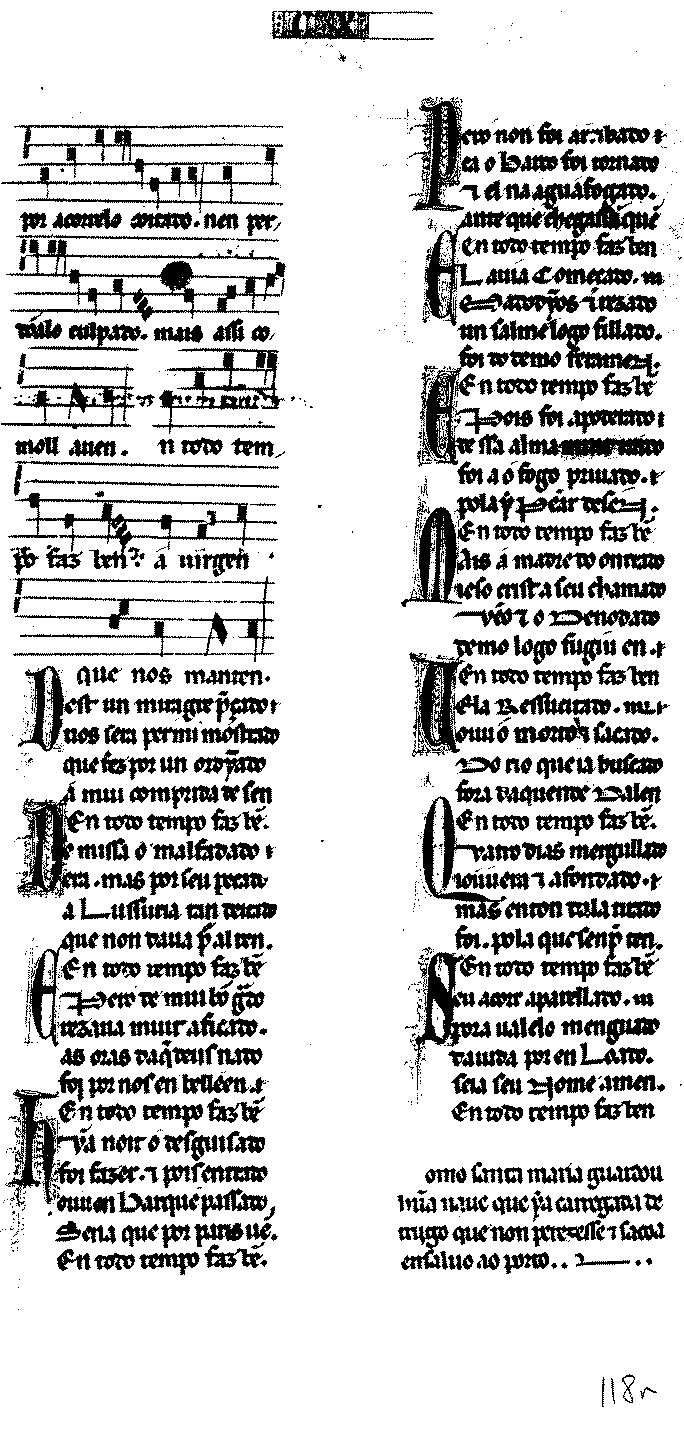 por acorrelo coitato. nen per
doalo culpado. mais assi co
moll auen. n todo tem
po faz ben: a uirgen
que nos manten.
Dest un miragre p̃çado ⁊
uos sera per mi mostrado
que fez por un ordỹado
á mui comprida de sen
En todo tempo faz bẽ.
De missa ó malfadado ⁊
era. mas por seu pecado
a Lussuria tan deitado
que non daua p̃ al ren.
En todo tempo faz bẽ
Pero de mui bõ g̃do
rezaua muit aficado.
as oras daq̃ deus nado
foi por nos en belleen. ⁊
En todo tempo faz bẽ
ỹa noit o desguisado
foi fazer. ⁊ pois entrado
ouu en Barque passado,
Sena que por paris uẽ.
En todo tempo faz bẽ.
Pero non foi arribado ⁊
ca o Barco foi tornado
⁊ el na agua fogado.
ante que chegass que
En todo tempo faz ben
L auia Começado. m
e Patodỹos ⁊ rezado
un salme logo fillado.
foi do demo
En todo tempo faz bẽ
E Pois foi apoderado ⁊
de ssa alma
foi a ó fogo priuado. ⁊
pola ỹ
En todo tempo faz bẽ
Mais á madre do onrrado
ieso crist a seu chamado
vẽo ⁊ o Denodado
demo logo fugiu en. ⁊
En todo tempo faz ben
Ela Ressucitado.
ouu ó morto ⁊ sacado.
Do rio que ia buscado
fora daquende
En todo tempo faz bẽ.
Quatro dias mergullado
iouuera ⁊ afondado. ⁊
mas enton dala tirado
foi. pola que senp̃ ten.
En todo tempo faz bẽ
Seu acorr aparellado. m
pora ualelo menguado
dauida por en Loado.
seia seu Nome amen.
En todo tempo faz ben
omo santa maria guardou
hũa naue que ỹa carregada de
trijgo que non pereçesse ⁊ sacoa
en saluo ao porto..
118r